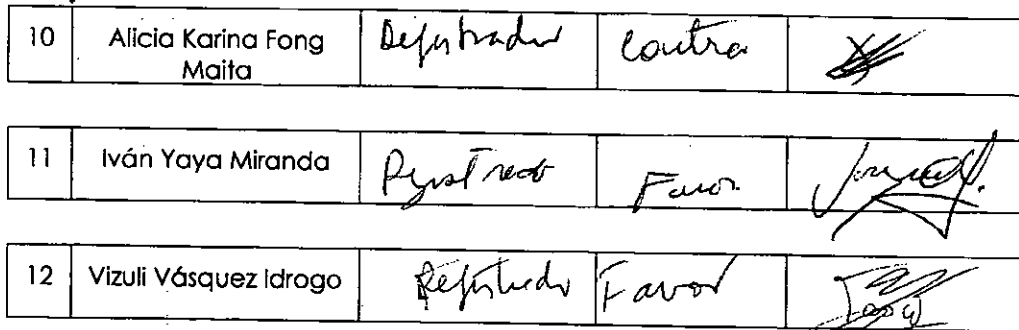 10 Alicia Karina Fong Registrador Contra
Maita
11 Iván Yaya Miranda Favor
12 Vizuli Vásquez Idrogo Registrador Favor